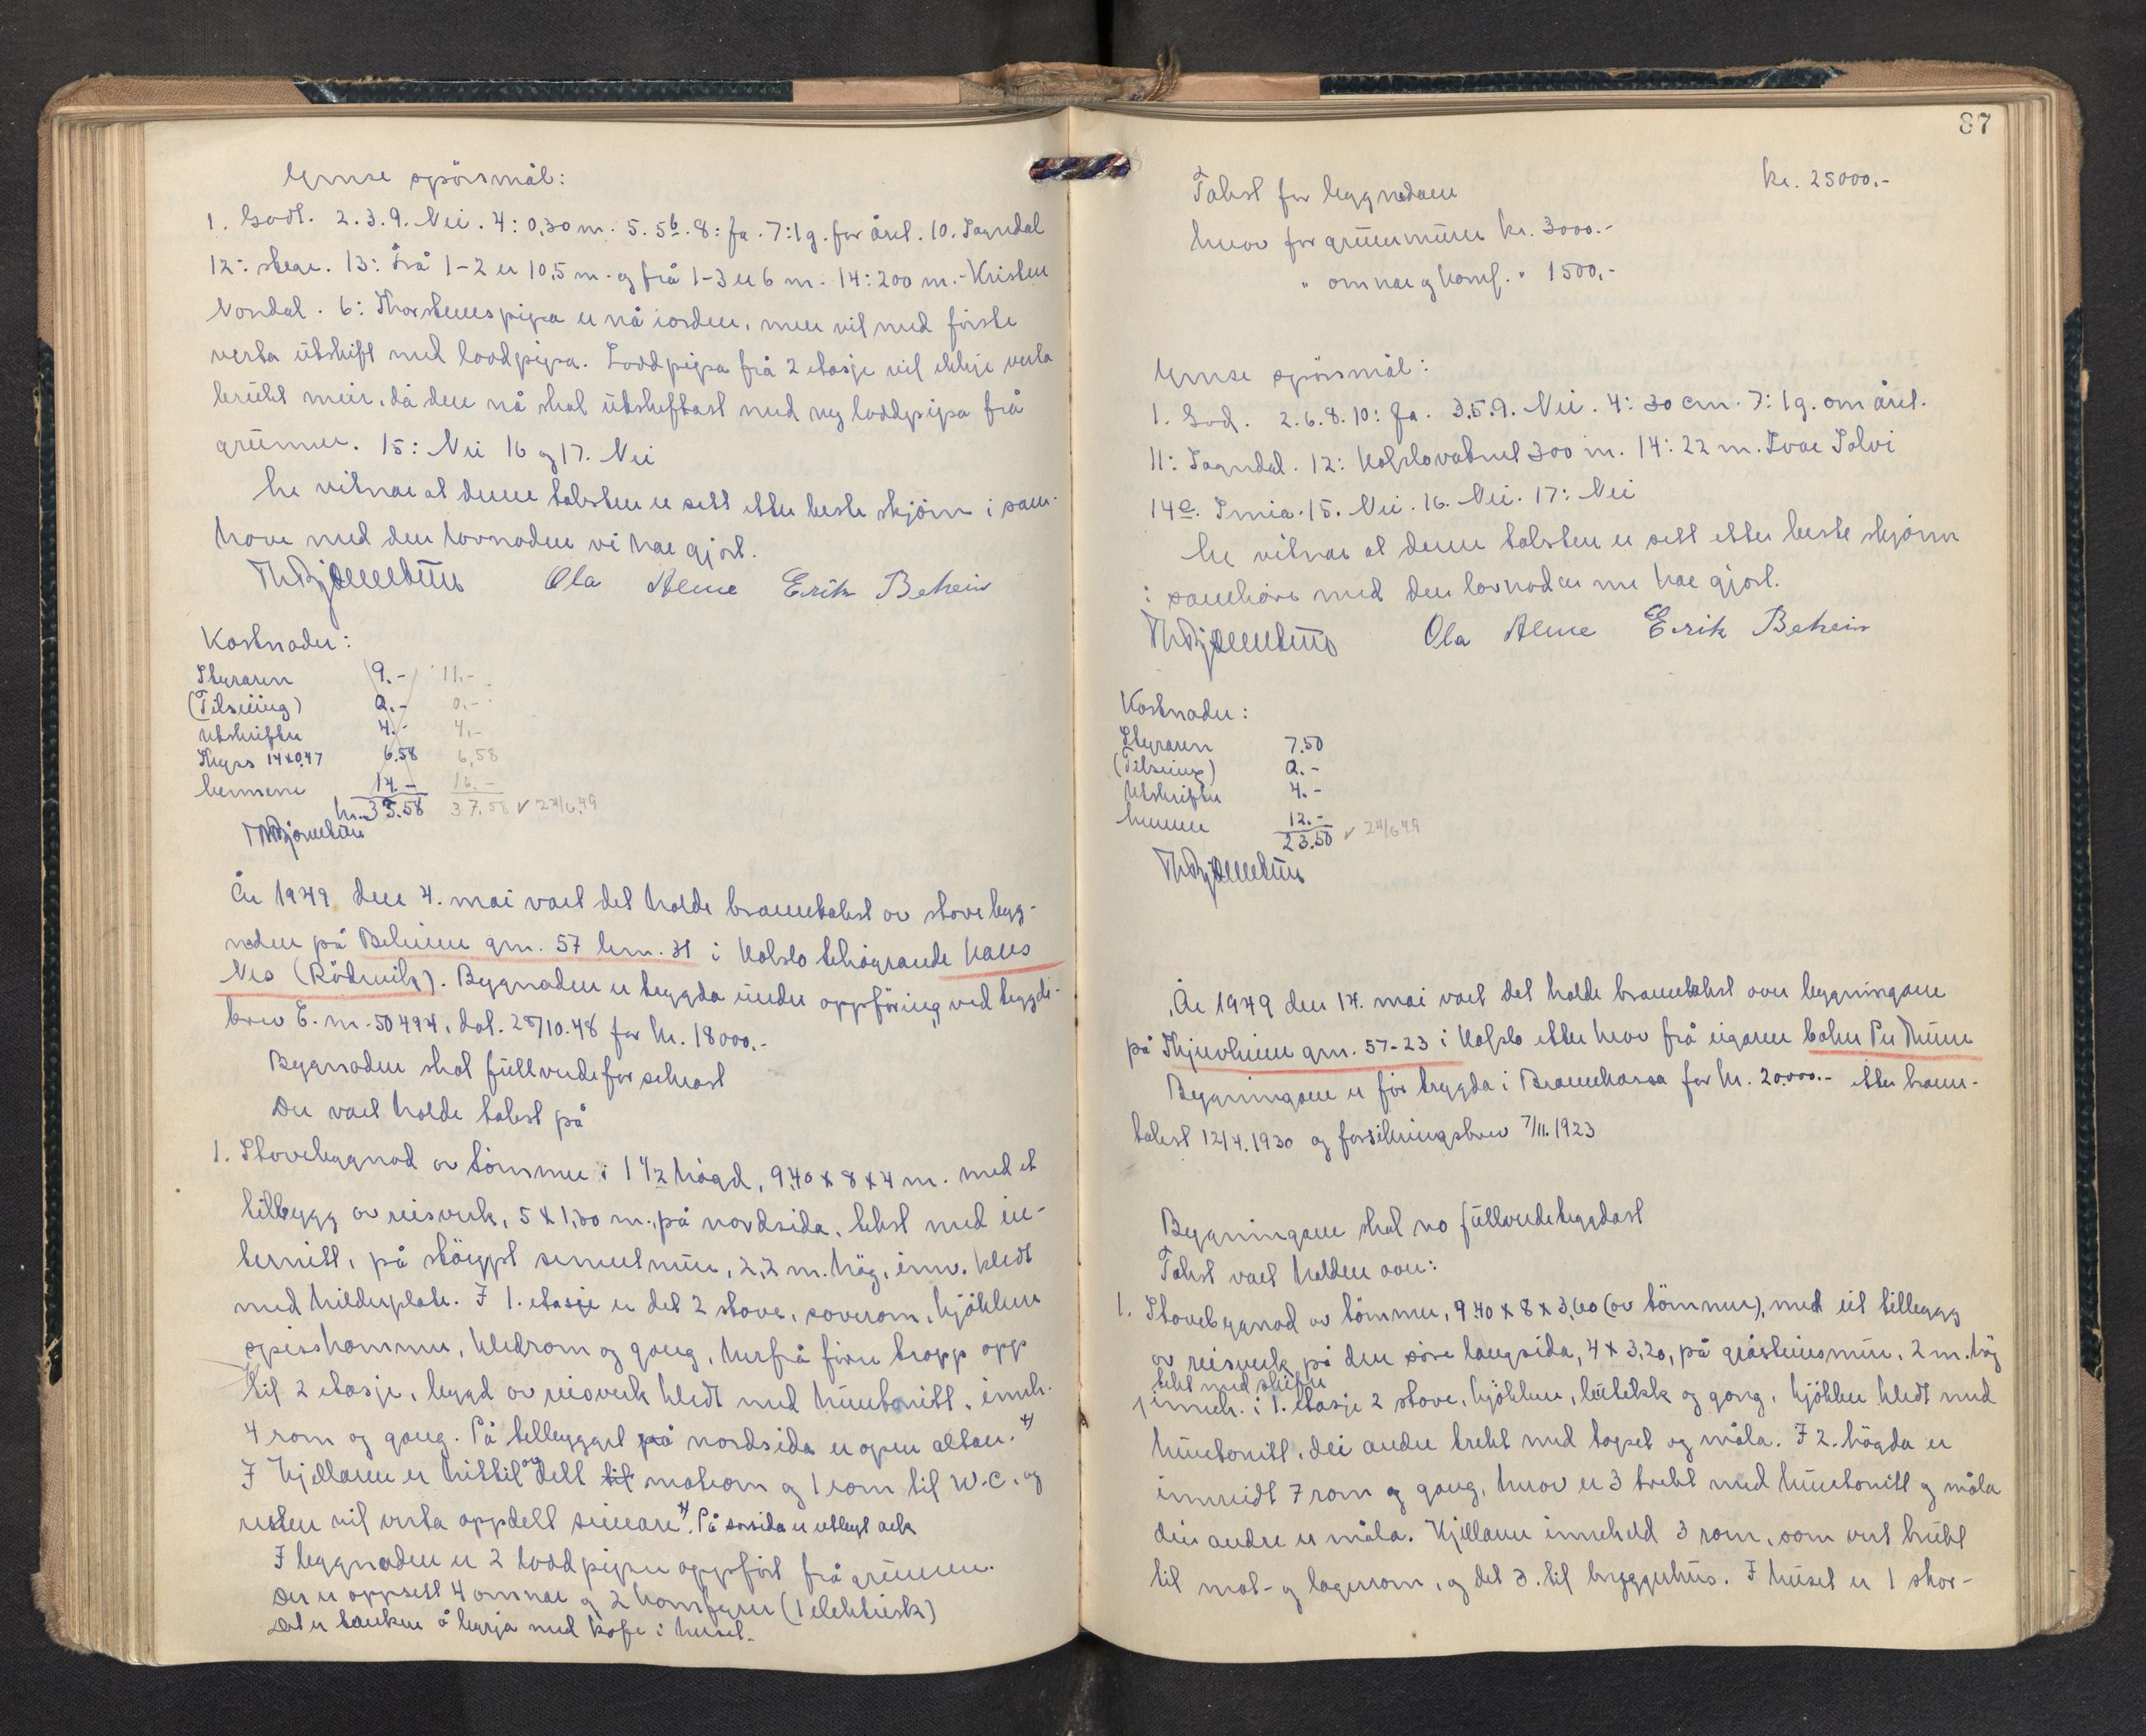 Ymse spörsmål:
1. Godt. 2.3.9. Nei. 4: 0,30 m. 5. 5b. 8: Ja. 7: 1 g. for året. 10. Sogndal
12: stega. 13: Frå 1-2 er 10,5 m. og frå 1-3 er 6 m. 14: 200 m. Kristen
Nondal. 6: Skorsteinspipa er nå i orden, men vil med förste
verta utskift med loddpipa. Loddpipa frå 2 etasje vil ikkje verta
brukt meir, då den nå skal utskiftast med ny loddpipa frå
grunnen. 15: Nei 16 og 17. Nei
Me vitnar at denne taksten er sett etter beste skjönn i sam-
høve med den lovnaden vi har gjort.
Ola Alme Erik Beheim
Kostnader:
Styraren 9.- 11.-
(Tilseiing) 2.- 0.-
Utskrifter 4.- 4.-
Skyss 14x0,47 6.58 6,58
Mennene 14.- 16.-
kr. 35.58 37,58 ✓ 24/6.49
År 1949 den 4. mai vart det halde branntakst av stovebygg-
naden på Beheim gnr. 57 bnr. 31 i Kaslo tilhøgrande Hans
Nes (Rödmilk). Bygnaden er trygda under oppföring, ved trygde-
brev E. nr. 50494, dat. 28/10.48 for kr. 18000.-
Bygnaden skal fullverdeforsikrast
Der vart halde takst på
1. Stovebygnad av tömmer i 1 1/2 högd, 9,40 x 8 x 4 m. med et
tilbygg av reisverk, 5 x 1,30 m., på nordsida, tekt med in-
ternitt, på stöypt sementmur, 2,2 m. hög, innv. kledt
med hilderplate. I 1. etasje er det 2 stove, soverom, kjökken
spisskammer, kledrom og gang, herfrå förer trapp opp
til 2 etasje, bygd av reisverk kledt med huntonitt, inneh.
4 rom og gang. På tilbygget på nordsida er open altan. x)
I kjellaren er hittil avdelt til matrom og 1 rom til W.C. og
resten vil verta oppdelt seinare. x) På sorsida er utbygt ark
I bygnaden er 2 loddpiper oppfört frå grunnen.
Der er oppsett 4 omnar og 2 komfyrer (1 elektrisk)
Det er tanken å byrja med kafe i huset.
87
Takst for byggnadane kr. 25000.-
hvorav for grunnmuren kr. 3000.-
" omnar og komf. " 1500,-
Ymse spörsmål:
1. God. 2.6.8.10: Ja. 3.5.9. Nei. 4: 30 cm. 7: 1 g. om året.
11: Sogndal. 12: Kalslovatnet 300 m. 14: 22 m. Ivar Solvi
14e. Smia. 15. Nei. 16. Nei. 17: Nei
Me vitnar at denne taksten er sett etter beste skjönn
i samhøve med den lovnaden me har gjort.
Ola Alme Erik Beheim
Kostnader:
Styraren 7.50
(Tilseiing) 2.-
Utskrifter 4.-
Mennene 12.-
23.50 ✓ 24/6 49
År 1949 den 14. mai vart det halde branntakst over bygningane
på Skjerheim gnr. 57-23 i Kaslo etter krav frå eigaren Per
Bygningane er för trygda i Brannkassa for kr. 20.000.- etter brann-
takst 12/4.1930 og forsikringsbrev 7/11.1923
Bygningane skal no fullverdetrygdast
Takst vart halden over:
1. Stovebygnad av tömmer, 9.40 x 8 x 3,60 (av tömmer), med eit tilbygg
av reisverk på den söre langsida, 4 x 3,20, på gråsteinsmur, 2 m. hög
tekt med skifer
inneh. i 1. etasje 2 stove, kjökken, bislekk og gang, kjökken kledt med
huntonitt, dei andre trekt med tapet og måla. I 2. högda er
innreidt 7 rom og gang, hvorav er 3 trekt med huntonitt og måla
dei andre er måla. Kjellaren inneheld 3 rom, som vert brukt
til mat- og lagerrom, og det 3. til bryggerhus. I huset er 1 skor-